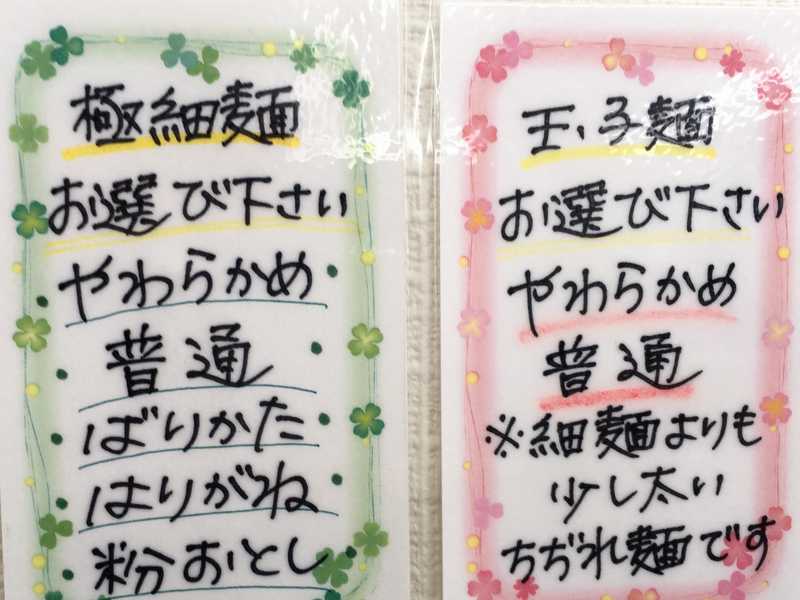 極細麺
お選び下さい
やわらかめ
普通
ばりかた
はりがね
粉おとし
玉子麺
お選び下さい
やわらかめ
普通
※細麺よりも
少し太い
ちぢれ麺です